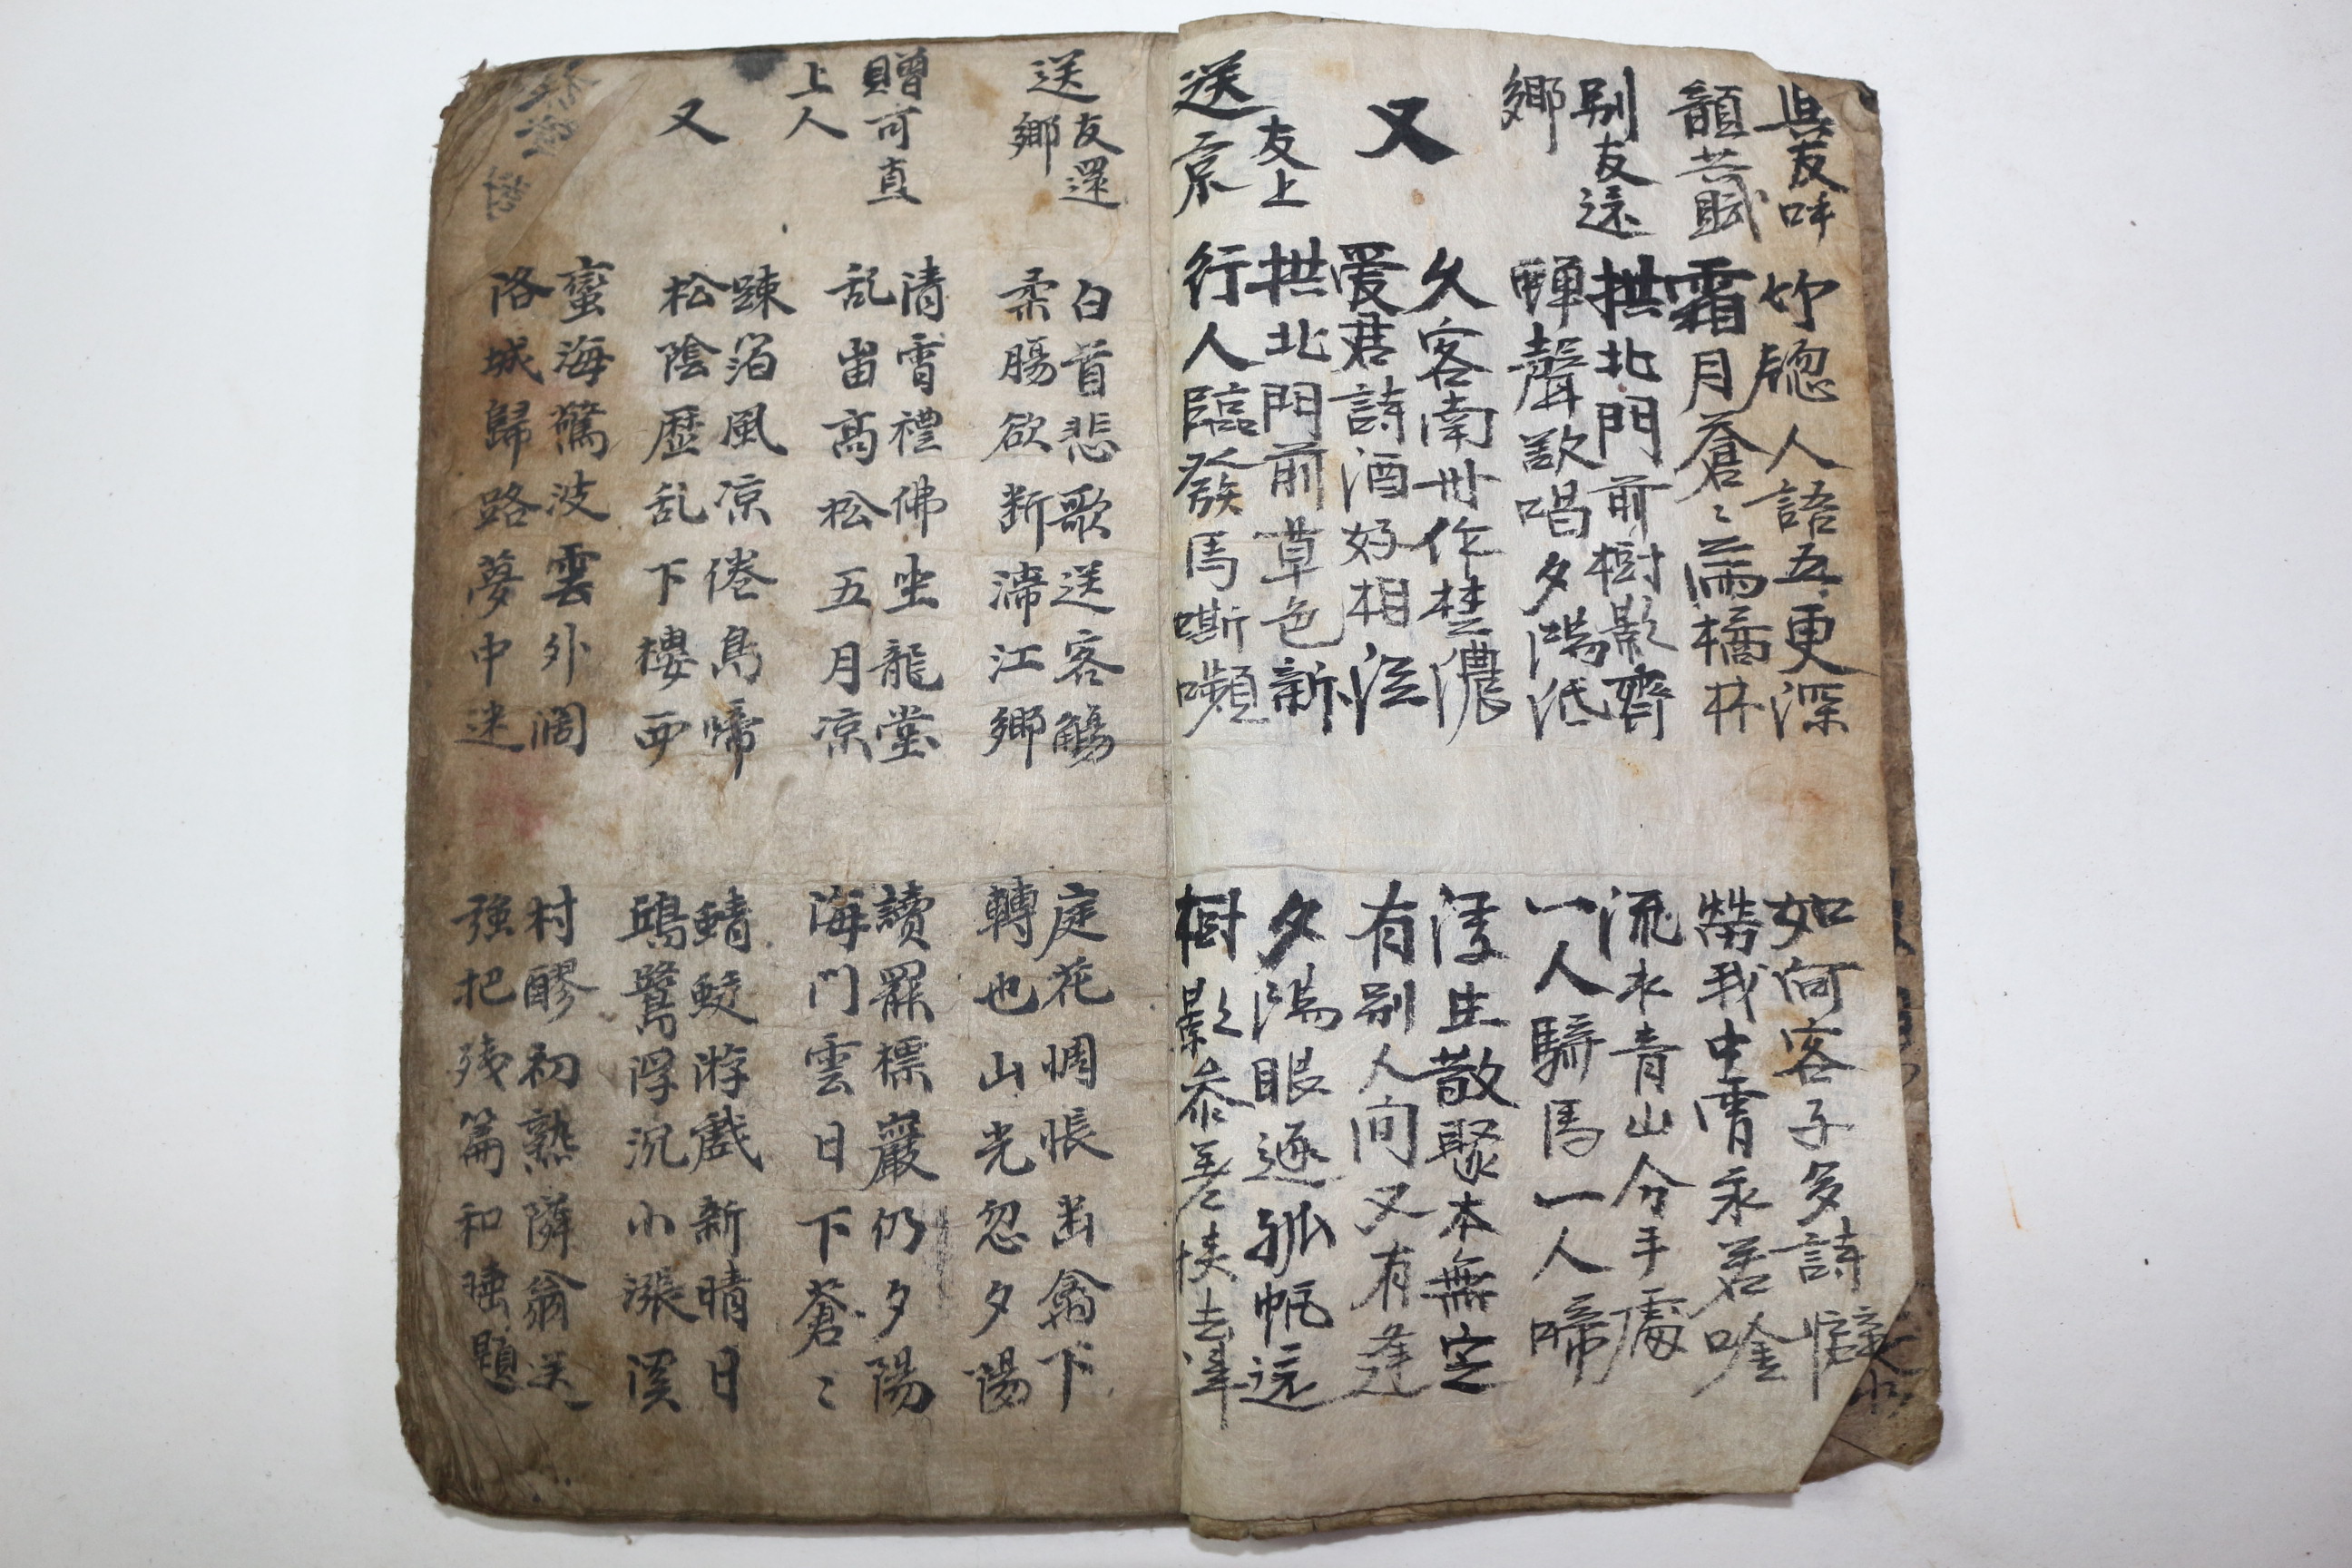 與友呼
韻共賦
竗牕人語五更深
如何客子多詩癖
霜月蒼〻滿橘林
勞我中宵永若唫
別友還
鄉
拱北門前樹影齊
流水青山分手處
蟬聲歇唱夕陽低
一人騎馬一人啼
又
久客南州作楚濃
浮生散聚本無定
爱君詩酒好相從
有別人間又有逢
送友上
京
拱北門前草色新
夕陽眼逐孤帆遠
行人臨發馬嘶嚬
樹影參差悵去
送友還
鄉
白首悲歌送客觴
庭花惆悵幽禽下
柔腸欲断滯江鄉
轉也山光忽夕陽
贈可真
上人
清宵禮佛坐龍堂
讀罷標巖仍夕陽
乱畄高松五月凉
海門雲日下蒼〻
又
踈箔風凉倦鳥啼
鯖鮫游戯新晴日
松陰歷乱下樓西
鷗鷺浮沉小漲溪
蛮海驚波雲外濶
村醪初熟隣翁送
洛城歸路夢中迷
強把残篇和睡題